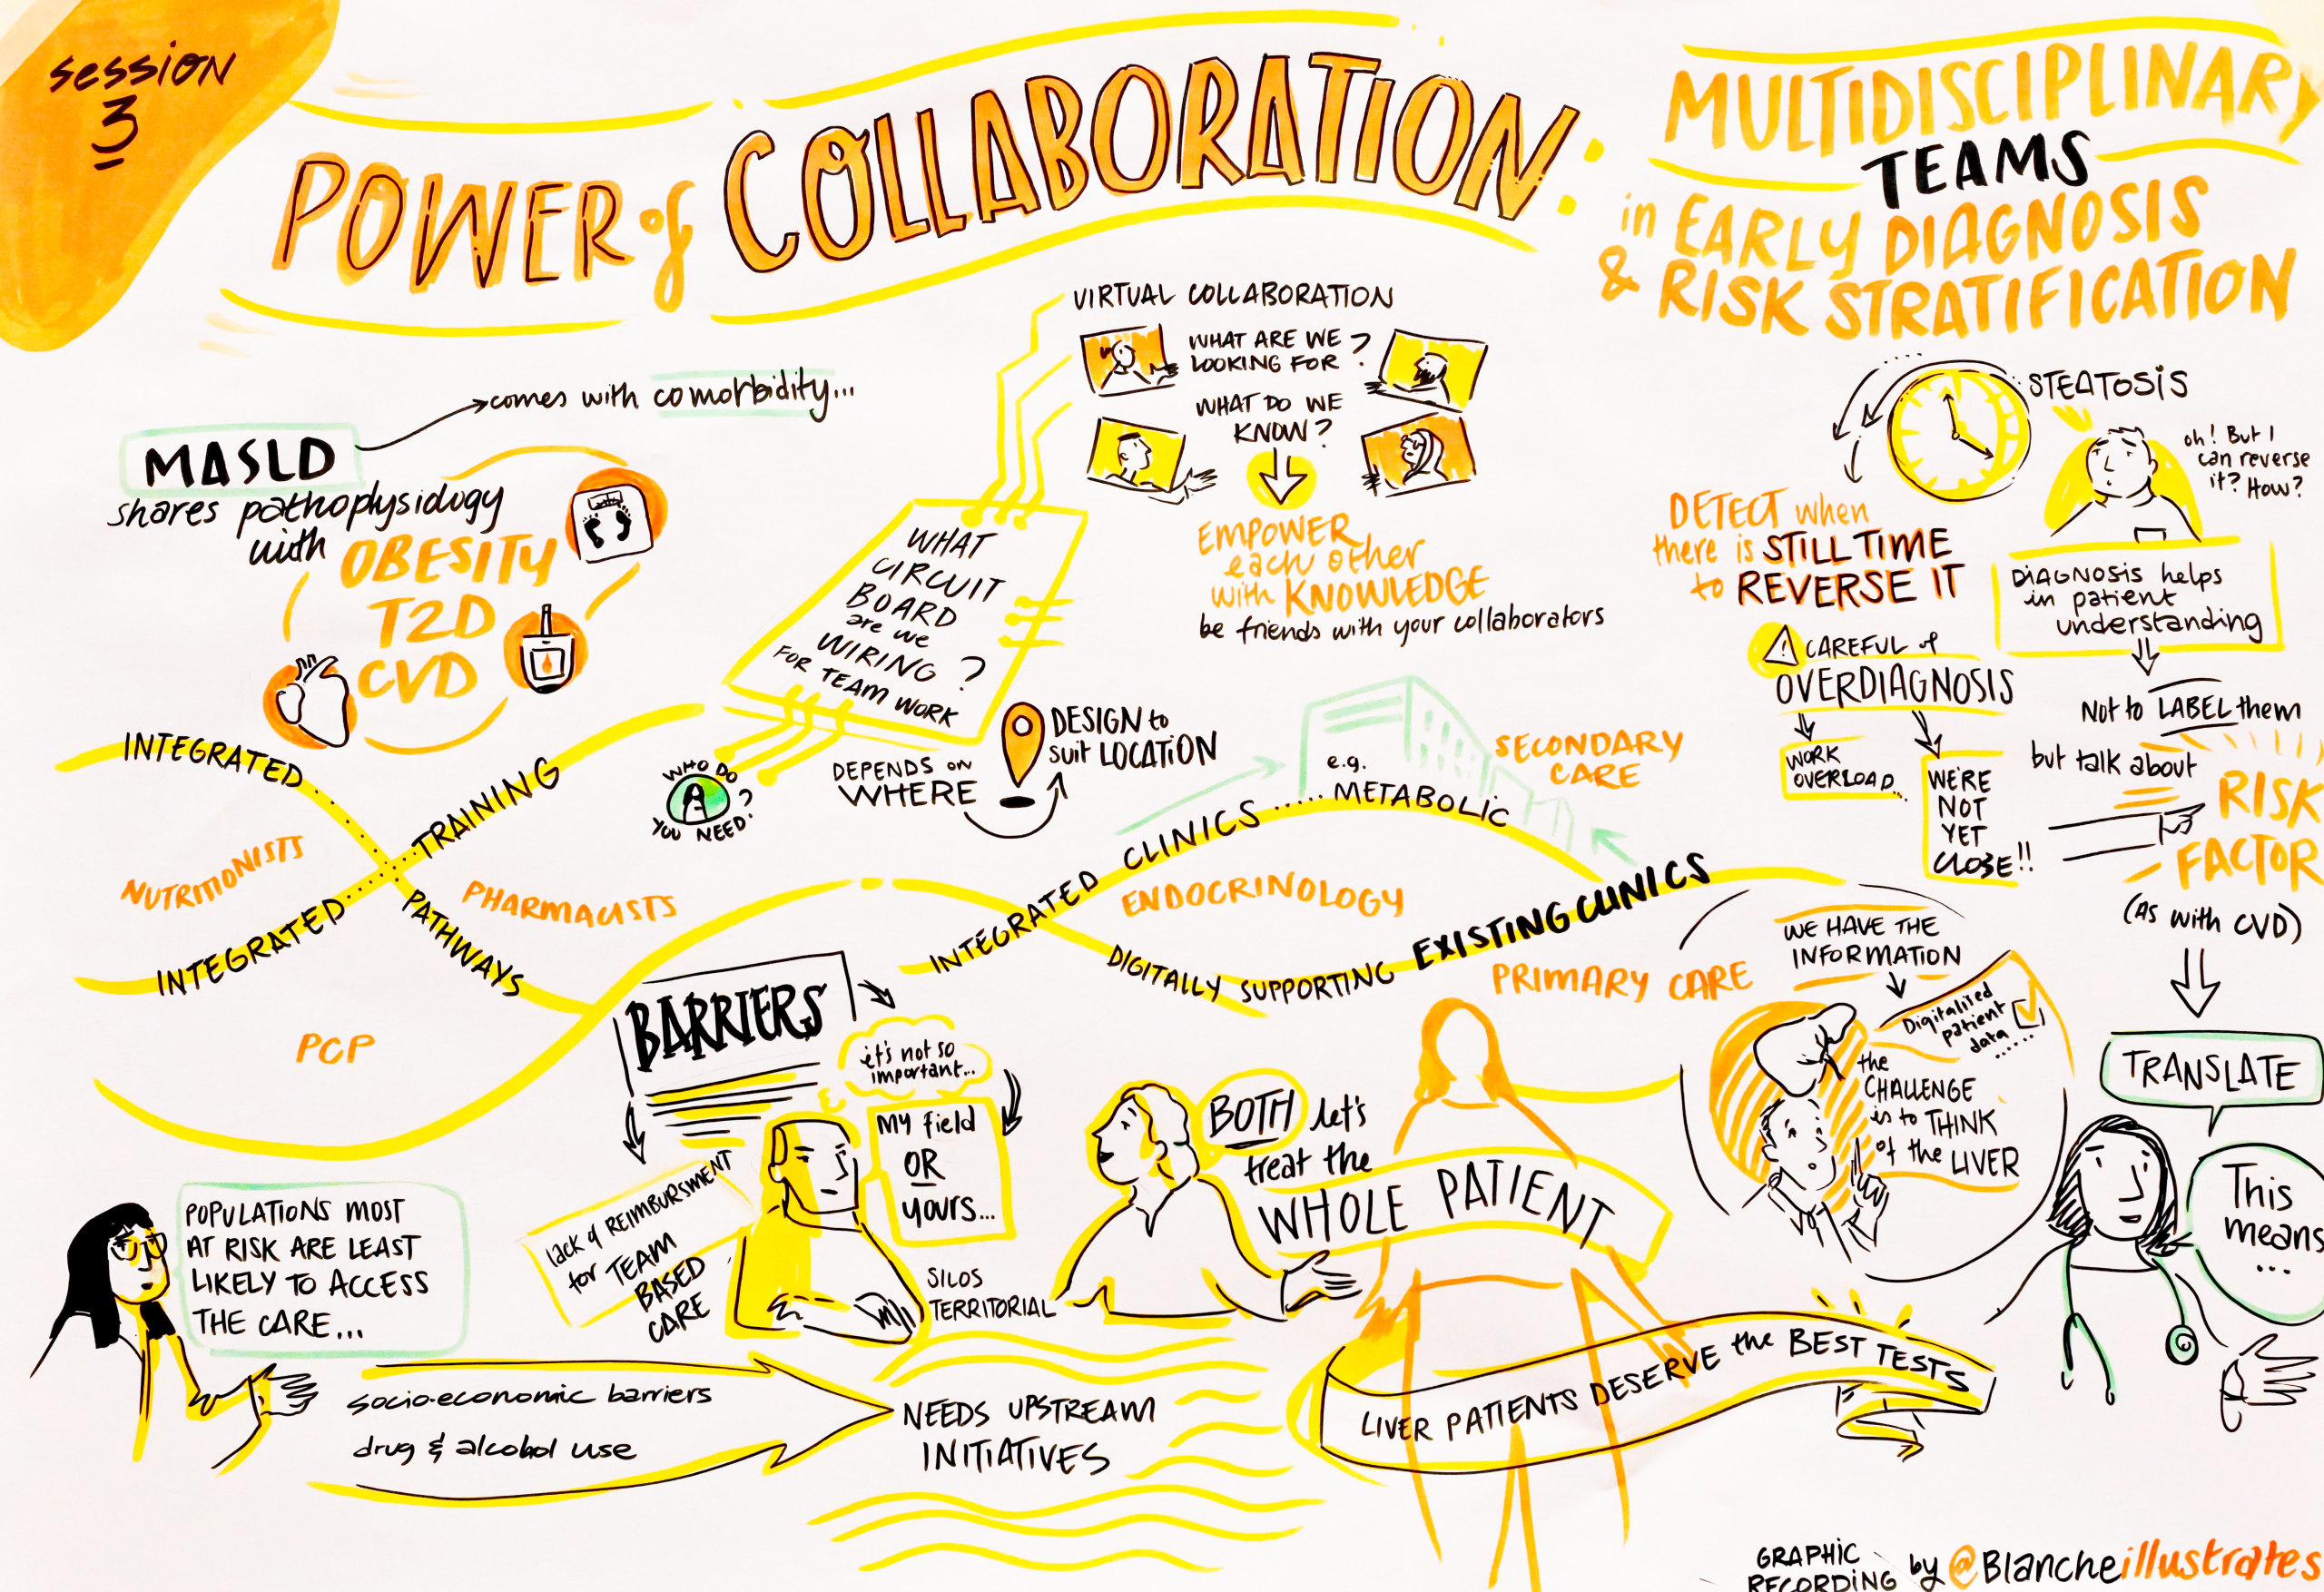 SESSION
3
POWER of COLLABORATION:
MULTIDISCIPLINARY
TEAMS
in EARLY DIAGNOSIS
& RISK STRATIFICATION
MASLD
comes with comorbidity...
shares pathophysiology
with OBESITY
T2D
CVD
VIRTUAL COLLABORATION
WHAT ARE WE
LOOKING FOR ?
WHAT DO WE
KNOW?
EMPOWER
each other
with KNOWLEDGE
be friends with your collaborators
WHAT
CIRCUIT
BOARD
are we
WIRING ?
FOR TEAM WORK
WHO DO
YOU NEED?
DEPENDS ON
WHERE
DESIGN to
suit LOCATION
STEATOSIS
oh! But I
can reverse
it? How?
DETECT when
there is STILL TIME
to REVERSE IT
DIAGNOSIS helps
in patient
understanding
CAREFUL of
OVERDIAGNOSIS
WORK
OVERLOAD...
WE'RE
NOT
YET
CLOSE!!
Not to LABEL them
but talk about
RISK
FACTOR
(AS with CVD)
TRANSLATE
This
means
...
INTEGRATED......TRAINING
INTEGRATED......PATHWAYS
NUTRITIONISTS
PHARMACISTS
PCP
INTEGRATED CLINICS ..... e.g. METABOLIC
SECONDARY
CARE
ENDOCRINOLOGY
DIGITALLY SUPPORTING EXISTING CLINICS
PRIMARY CARE
WE HAVE THE
INFORMATION
Digitalised
patient
data
......
the
CHALLENGE
is to THINK
of the LIVER
BARRIERS
it's not so
important...
My field
OR
yours...
SILOS
TERRITORIAL
lack of REIMBURSMENT
for TEAM
BASED
CARE
BOTH let's
treat the
WHOLE PATIENT
POPULATIONS MOST
AT RISK ARE LEAST
LIKELY TO ACCESS
THE CARE...
socio-economic barriers
drug & alcohol use
NEEDS UPSTREAM
INITIATIVES
LIVER PATIENTS DESERVE the BEST TESTS
GRAPHIC
RECORDING by @Blancheillustrates